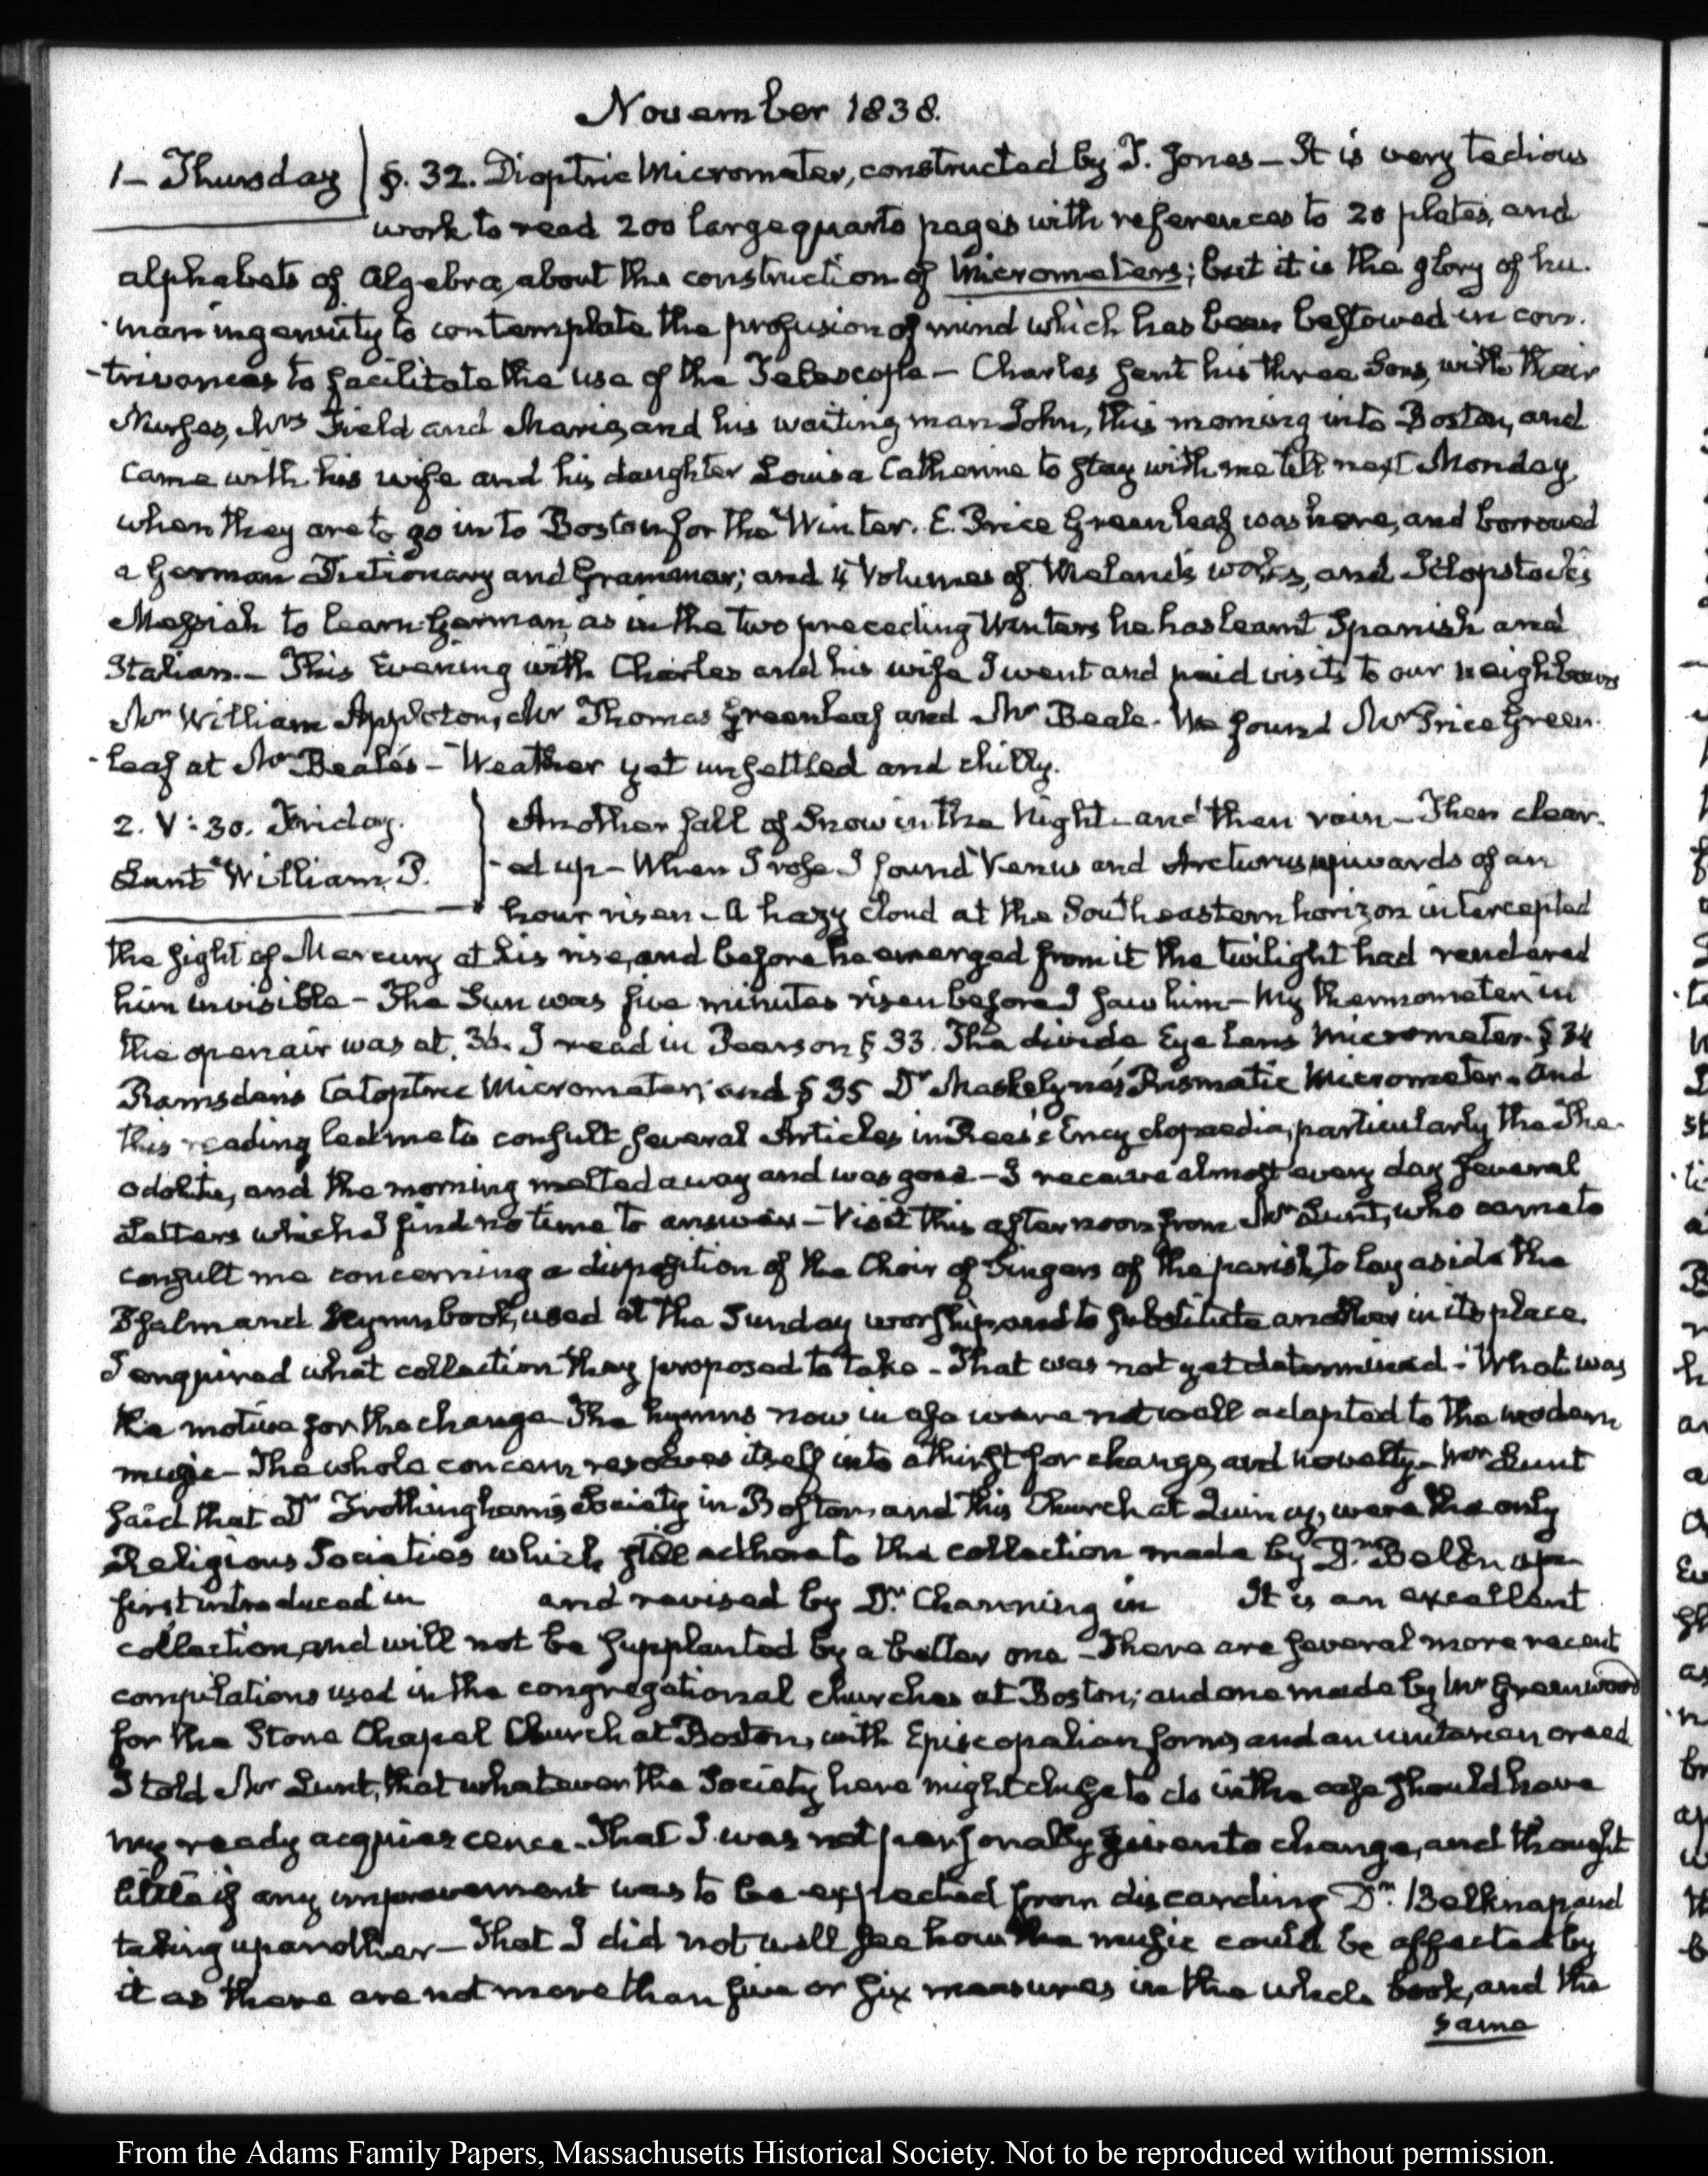 November 1838.
1 – Thursday
§. 32. Dioptric Micrometer, constructed by T. Jones – It is very tedious
work to read 200 large quarto pages with references to 20 plates, and
alphabets of Algebra, about the construction of Micrometers; but it is the glory of hu-
-man ingenuity to contemplate the profusion of mind which has been bestowed in con-
-trivances to facilitate the use of the Telescope – Charles sent his three Sons, with their
Nurses, Mrs Field and Maria, and his waiting man John, this morning into Boston, and
came with his wife and his daughter Louisa Catherine to stay with me till next Monday,
when they are to go into Boston for the Winter. E. Price Greenleaf was here, and borrowed
a German Dictionary and Grammar; and 4 Volumes of works, and Klopstock's
Messiah to learn German, as in the two preceding Winters he has learnt Spanish and
Italian. – This Evening with Charles and his wife I went and paid visits to our neighbours
Mr William Appleton, Mr Thomas Greenleaf and Mr Beale. We found Mr Price Green-
-leaf at Mr Beale's – Weather yet unsettled and chilly.
2. V:30. Friday.
Lunt William. P.
Another fall of Snow in the Night – and then rain – Then clear-
-ed up – When I rose I found Venus and Arcturus upwards of an
hour risen – A hazy cloud at the Southeastern horizon intercepted
the sight of Mercury at his rise, and before he emerged from it the twilight had rendered
him invisible – The Sun was five minutes risen before I saw him – My thermometer in
the open air was at 36. I read in Pearson § 33. The divide Eye Lens Micrometer. § 34
Ramsden's Catoptric Micrometer; and § 35 Dr Maskelyne's Prismatic Micrometer. And
this reading led me to consult several Articles in Rees's Encyclopaedia, particularly the The-
odolite, and the morning melted away and was gone – I receive almost every day several
Letters which I find no time to answer – Visit this afternoon from Mr Lunt, who came to
consult me concerning a disposition of the Choir of Singers of the parish, to lay aside the
Psalm and Hymn book, used at the Sunday worship, and to substitute another in its place.
I enquired what collection they proposed to take – That was not yet determined – What was
the motive for the change – The hymns now in use were not well adapted to the modern
music – The whole concern resolves itself into a thirst for change, and novelty – Mr Lunt
said that Dr Frothingham's Society in Boston and this Church at Quincy, were the only
Religious Societies which still adhere to the collection made by Dr. Belknap
first introduced in and revised by Dr. Channing in It is an excellent
collection, and will not be supplanted by a better one – There are several more recent
compilations used in the congregational churches at Boston; and one made by Mr Greenwood
for the Stone Chapel Church at Boston, with Episcopalian forms, and an unitarian creed
I told Mr Lunt, that whatever the Society here might chuse to do in the case should have
my ready acquiescence – That I was not personally given to change, and thought
little if any improvement was to be expected from discarding Dr. Belknap, and
taking up another – That I did not well see how the music could be affected by
it as there are not more than five or six measures in the whole book, and the
same
From the Adams Family Papers, Massachusetts Historical Society. Not to be reproduced without permission.